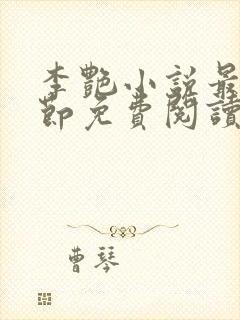 李艷小說最
節免費閱讀
曹琴